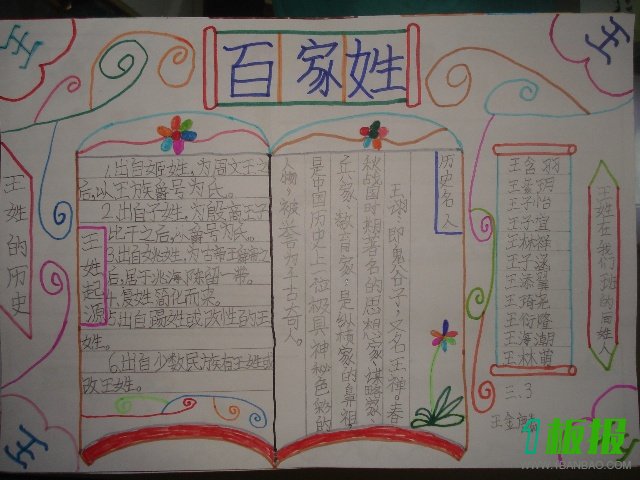 百家姓
王
王
王姓的历史
王姓起源
1.出自姬姓,为周文王之
后,以王族爵号为氏。
2.出自子姓,为殷商王子
比干之后,以爵号为氏。
3.出自妫姓,为古帝王虞舜之
后,居于洮海、陈留一带。
4.复姓简化而来。
5.出自赐姓或改性的王
姓。
6.出自少数民族有王姓或
改王姓。
历史名人
王诩,即鬼谷子,又名王禅。春
秋战国时期著名的思想家、谋略家、
兵家、教育家,是纵横家的鼻祖,
是中国历史上一位极具神秘色彩的
人物,被誉为千古奇人。
王姓在我们班的同姓人
王含羽
王子怡
王子宜
王林祥
王子涵
王添
王琦
王衍隆
王海潮
王林萌
三.3
王金
王
王
1板报
WWW.1BANBAO.COM